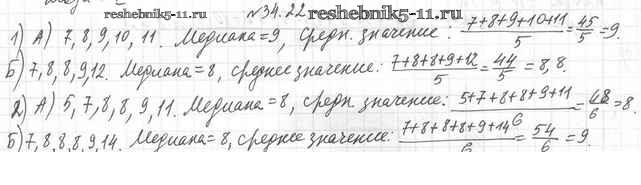 №34.22
reshebnik5-11.ru
1) А) 7, 8, 9, 10, 11. Медиана = 9, средн. значение: (7+8+9+10+11)/5 = 45/5 = 9.
Б) 7, 8, 8, 9, 12. Медиана = 8, среднее значение: (7+8+8+9+12)/5 = 44/5 = 8,8.
2) А) 5, 7, 8, 8, 9, 11. Медиана = 8, средн. значение: (5+7+8+8+9+11)/6 = 48/6 = 8.
Б) 7, 8, 8, 8, 9, 14. Медиана = 8, среднее значение: (7+8+8+8+9+14)/6 = 54/6 = 9.
reshebnik5-11.ru